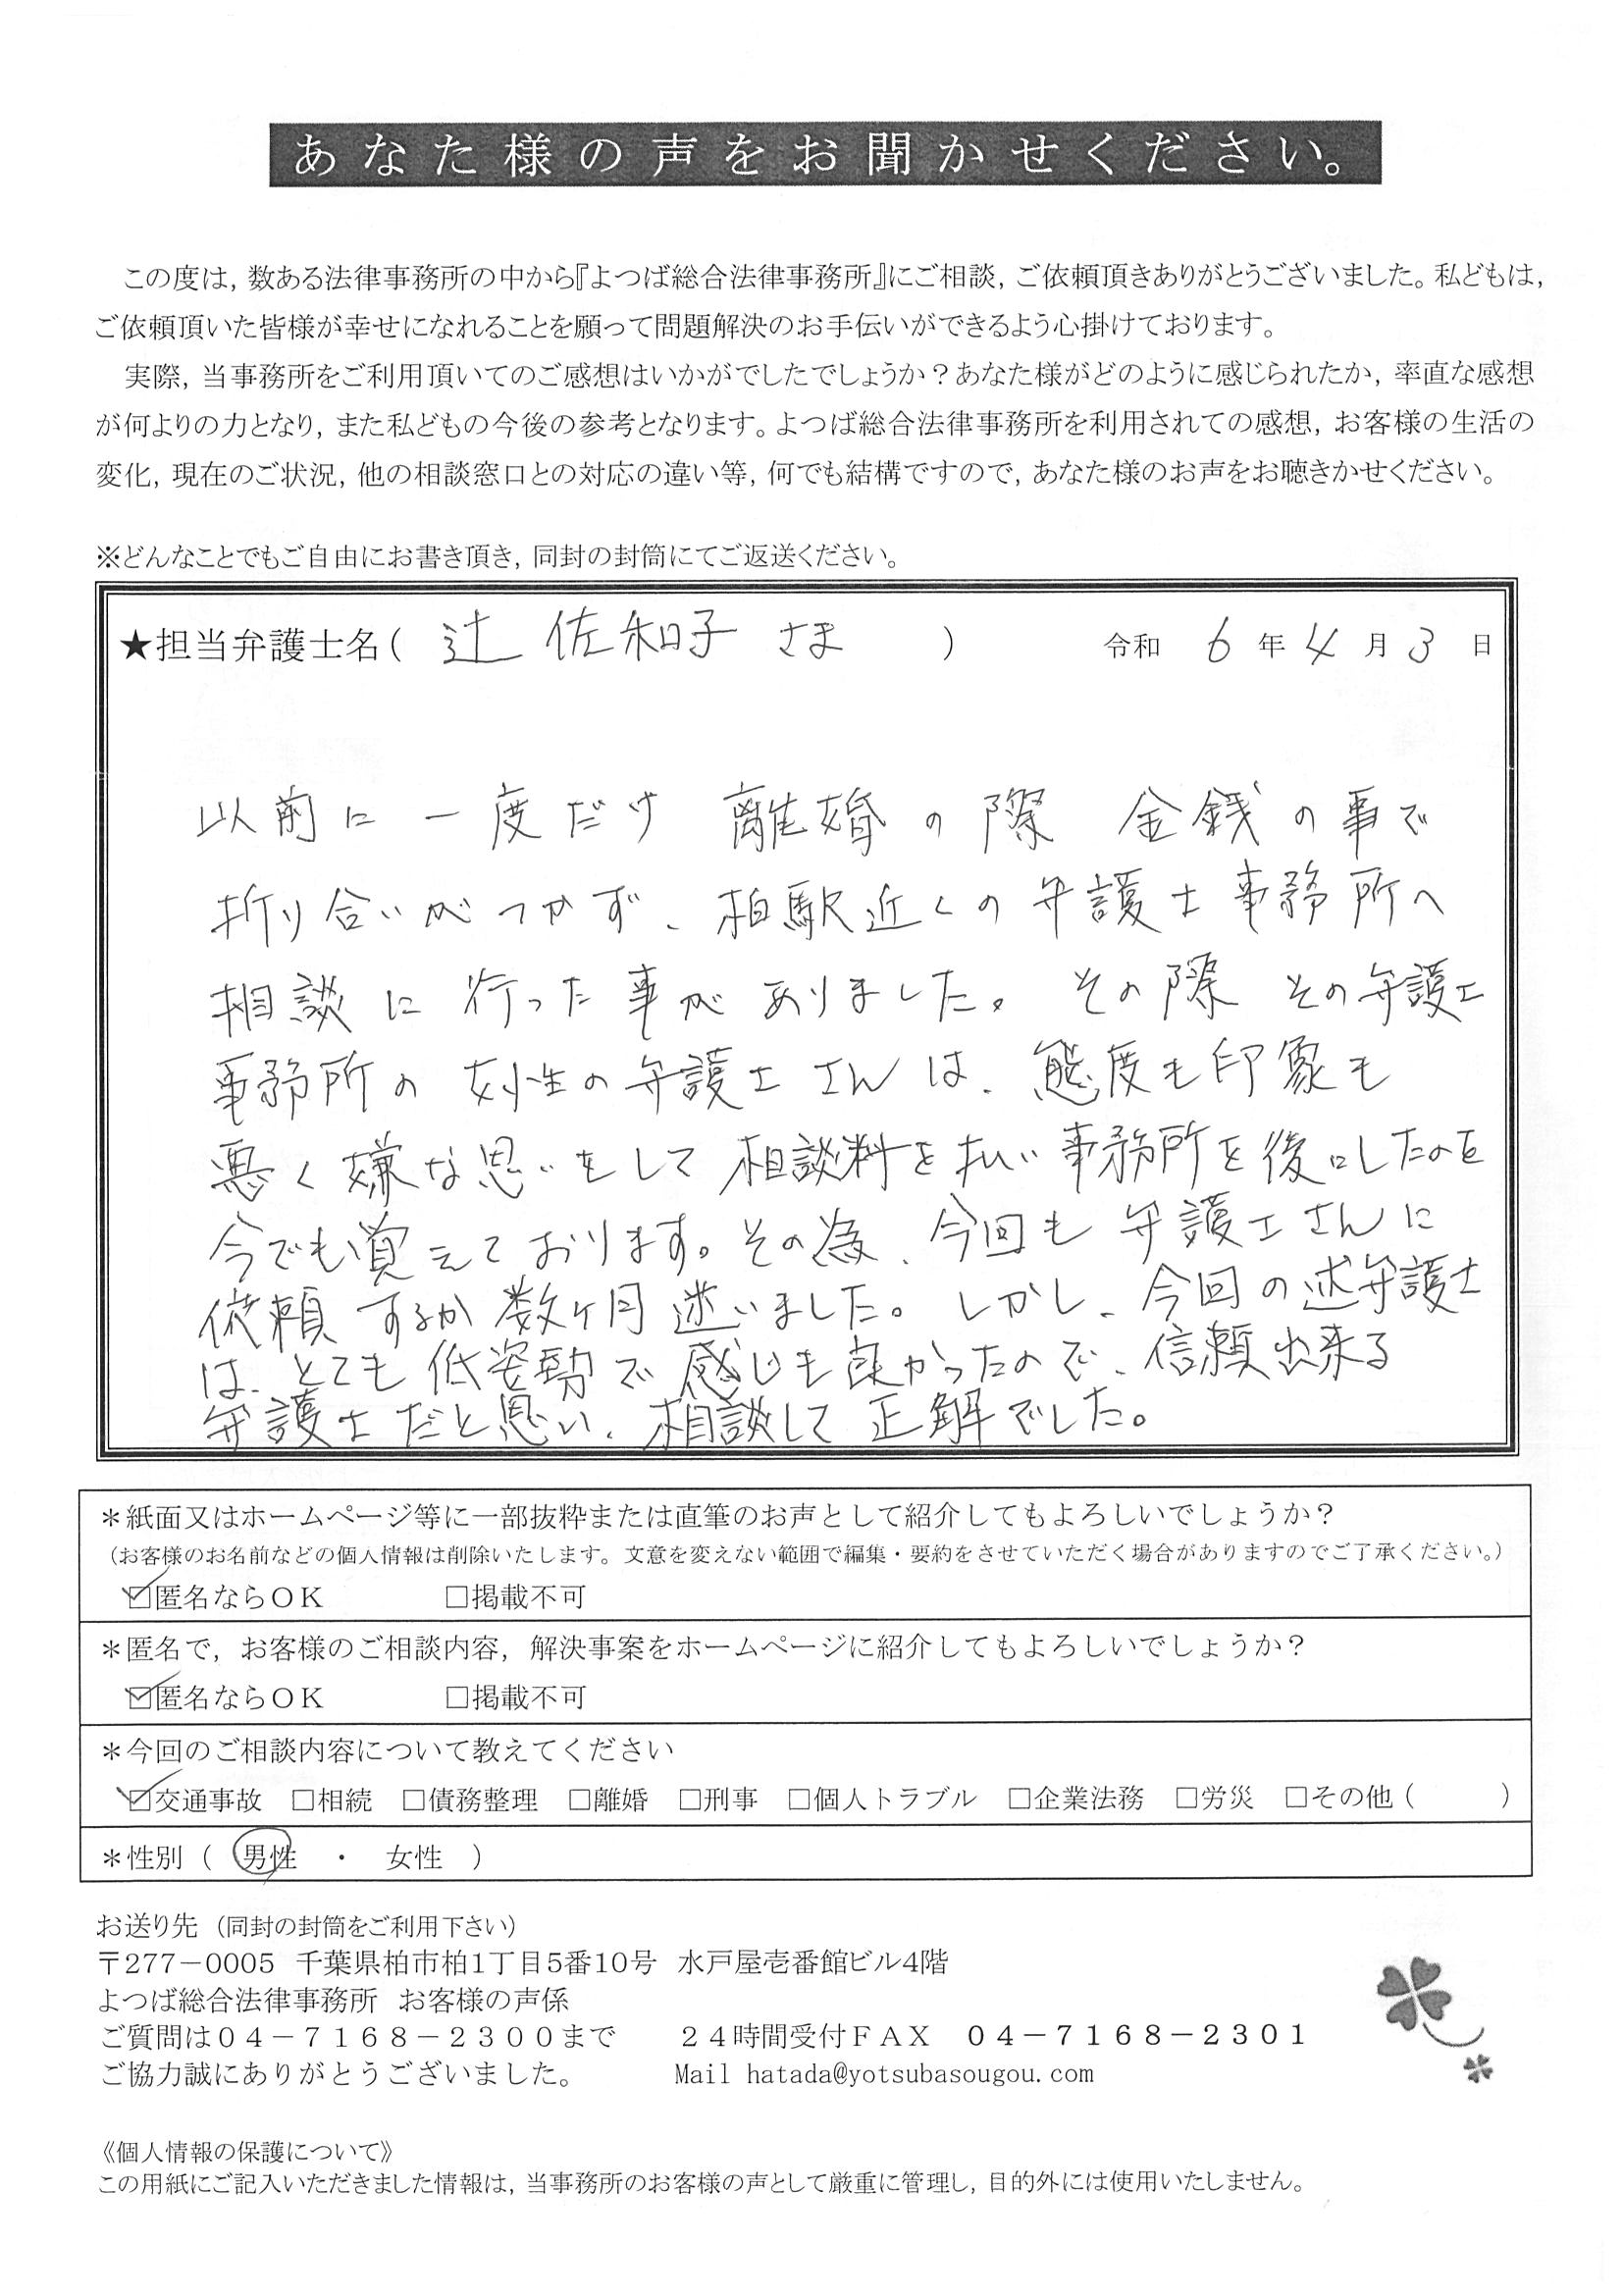 あなた様の声をお聞かせください。
この度は，数ある法律事務所の中から『よつば総合法律事務所』にご相談，ご依頼頂きありがとうございました。私どもは，
ご依頼頂いた皆様が幸せになれることを願って問題解決のお手伝いができるよう心掛けております。
実際，当事務所をご利用頂いてのご感想はいかがでしたでしょうか？あなた様がどのように感じられたか，率直な感想
が何よりの力となり，また私どもの今後の参考となります。よつば総合法律事務所を利用されての感想，お客様の生活の
変化，現在のご状況，他の相談窓口との対応の違い等，何でも結構ですので，あなた様のお声をお聴きかせください。
※どんなことでもご自由にお書き頂き，同封の封筒にてご返送ください。
★担当弁護士名（ 辻 佐和子 さま ） 令和 6 年 4 月 3 日
以前に一度だけ 離婚の際 金銭の事で
折り合いがつかず、柏駅近くの弁護士事務所へ
相談に行った事がありました。その際 その弁護士
事務所の女性の弁護士さんは、態度も印象も
悪く嫌な思いをして相談料を払い事務所を後にしたのを
今でも覚えております。その為、今回も弁護士さんに
依頼するか数ヶ月迷いました。しかし、今回の辻弁護士
は、とても低姿勢で感じも良かったので、信頼出来る
弁護士だと思い、相談して正解でした。
＊紙面又はホームページ等に一部抜粋または直筆のお声として紹介してもよろしいでしょうか？
（お客様のお名前などの個人情報は削除いたします。文意を変えない範囲で編集・要約をさせていただく場合がありますのでご了承ください。）
☑匿名ならＯＫ □掲載不可
＊匿名で，お客様のご相談内容，解決事案をホームページに紹介してもよろしいでしょうか？
☑匿名ならＯＫ □掲載不可
＊今回のご相談内容について教えてください
☑交通事故 □相続 □債務整理 □離婚 □刑事 □個人トラブル □企業法務 □労災 □その他（ ）
＊性別（ 男性 ・ 女性 ）
お送り先（同封の封筒をご利用下さい）
〒277－0005 千葉県柏市柏1丁目5番10号 水戸屋壱番館ビル4階
よつば総合法律事務所 お客様の声係
ご質問は０４－７１６８－２３００まで ２４時間受付ＦＡＸ ０４－７１６８－２３０１
ご協力誠にありがとうございました。 Mail hatada@yotsubasougou.com
《個人情報の保護について》
この用紙にご記入いただきました情報は，当事務所のお客様の声として厳重に管理し，目的外には使用いたしません。